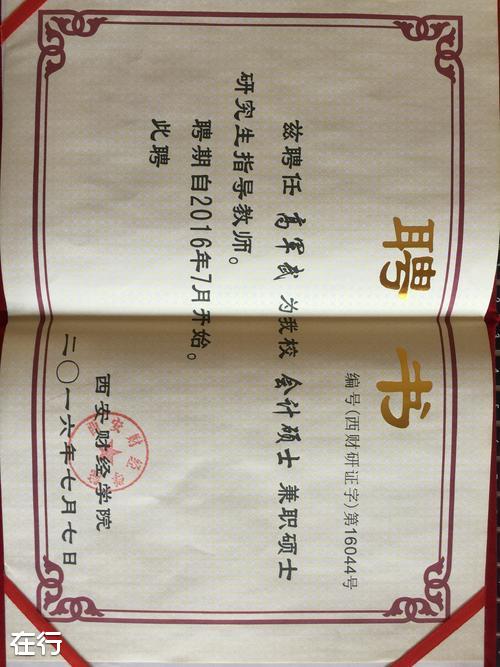 聘书
编号(西财研证字)第16044号
兹聘任 高军武 为我校 会计硕士 兼职硕士
研究生指导教师。
聘期自2016年7月开始。
此聘
西安财经学院
二〇一六年七月七日
在行